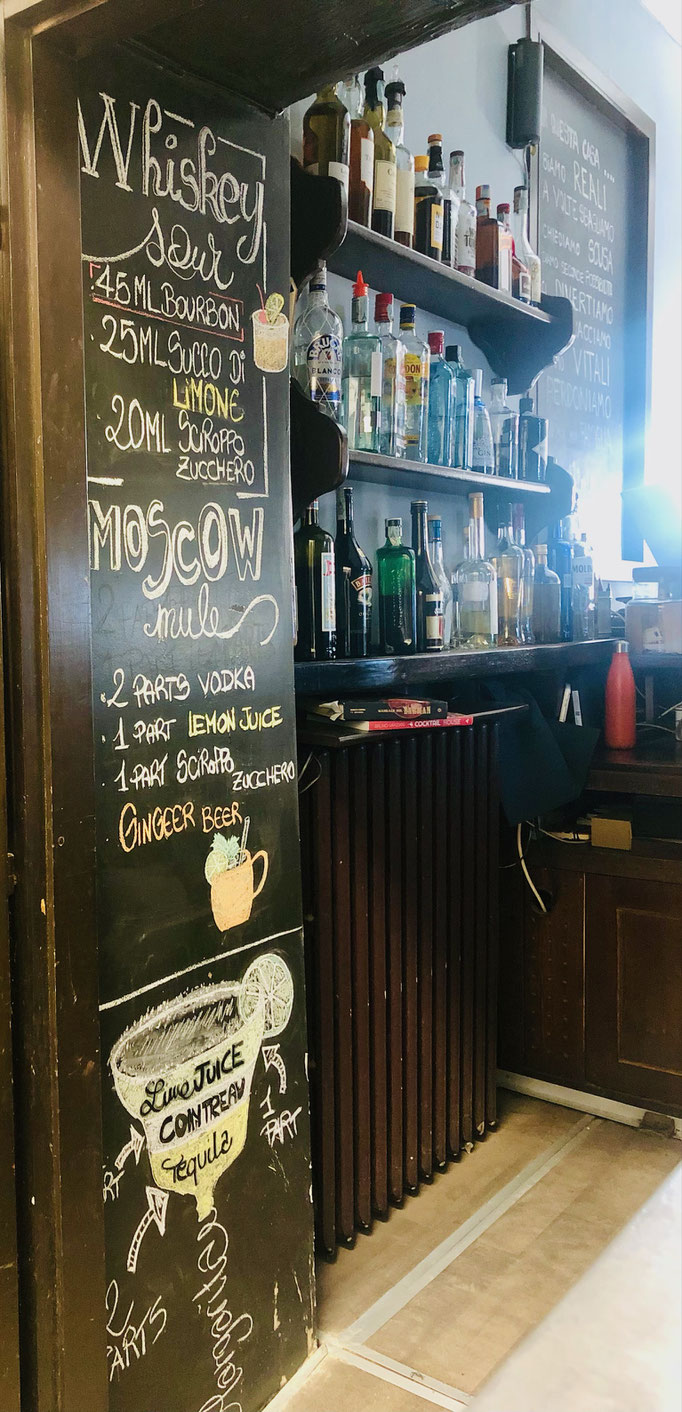 Whiskey
sour
45 ML BOURBON
25 ML SUCCO DI
LIMONE
20 ML SCIROPPO
ZUCCHERO
MOSCOW
mule
2 PARTS VODKA
1 PART LEMON JUICE
1 PART SCIROPPO
ZUCCHERO
GINGEER BEER
Lime JUICE
COINTREAU
Tequila
1
PART
2
PARTS
BLANCO
COCKTAIL HOUSE
QUESTA CASA ....
SIAMO REALI
A VOLTE SBAGLIAMO
CHIEDIAMO SCUSA
DIVERTIAMO
VITALI
PERDONIAMO